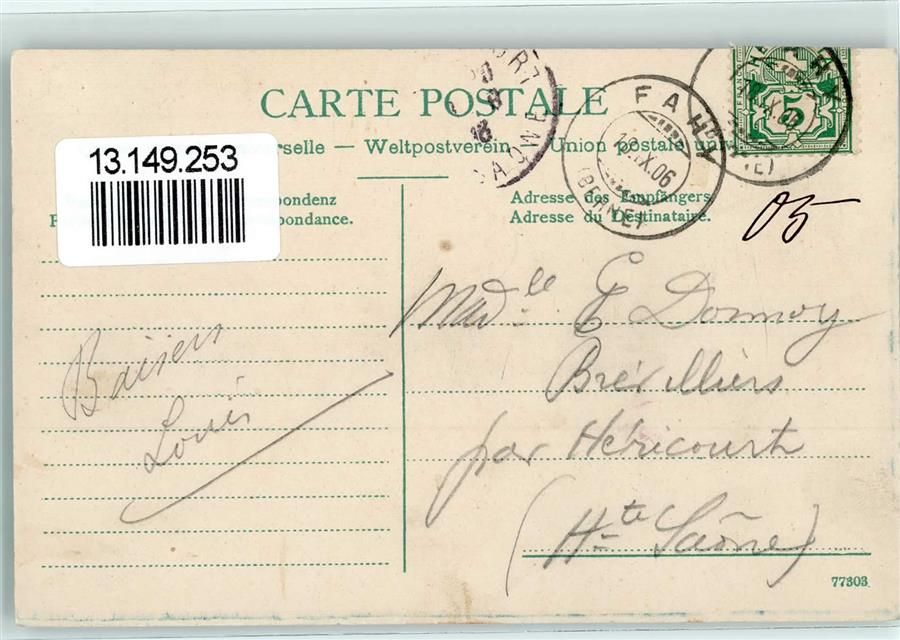 CARTE POSTALE
13.149.253
erselle — Weltpostverein — Union postale
pondenz
pondance.
Adresse des Empfängers.
Adresse du Destinataire.
FAHY
IX.06
(BERNE)
5
05
Madlle E Dormoy
Brévilliers
par Héricourt
(Hte Saône)
Baisers
Louis
77303